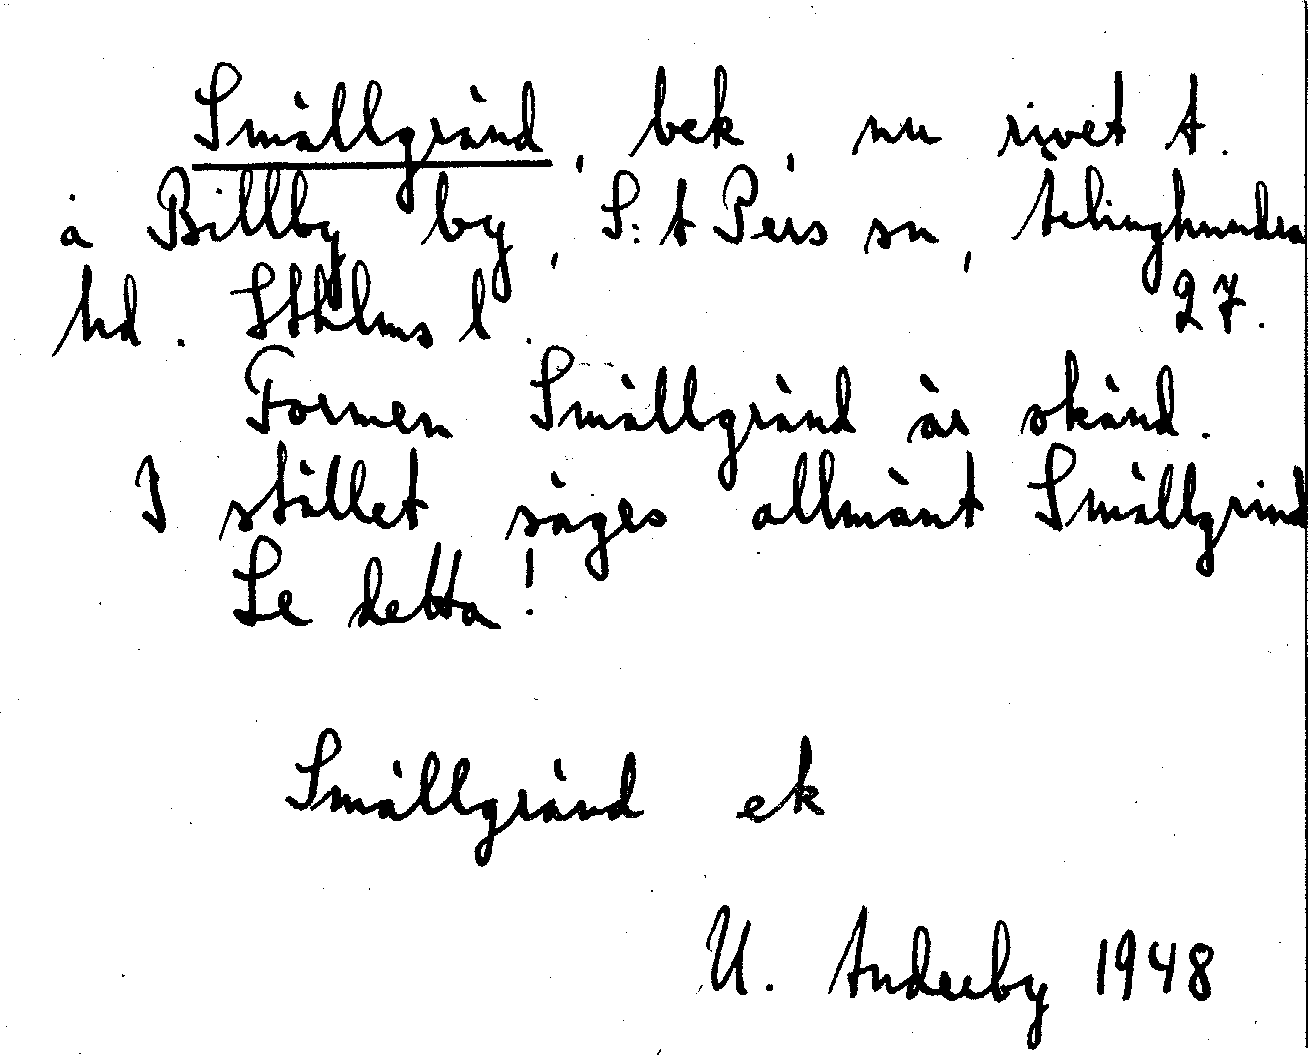 Smällgränd, bek, nu rivet t.
å Billby by, S:t Pers sn, Ärlinghundra
hd. Sthlms l. 27.
Formen Smällgränd är okänd.
I stället säges allmänt Smällgrind
Se detta!
Smällgränd ek
U. Anderby 1948